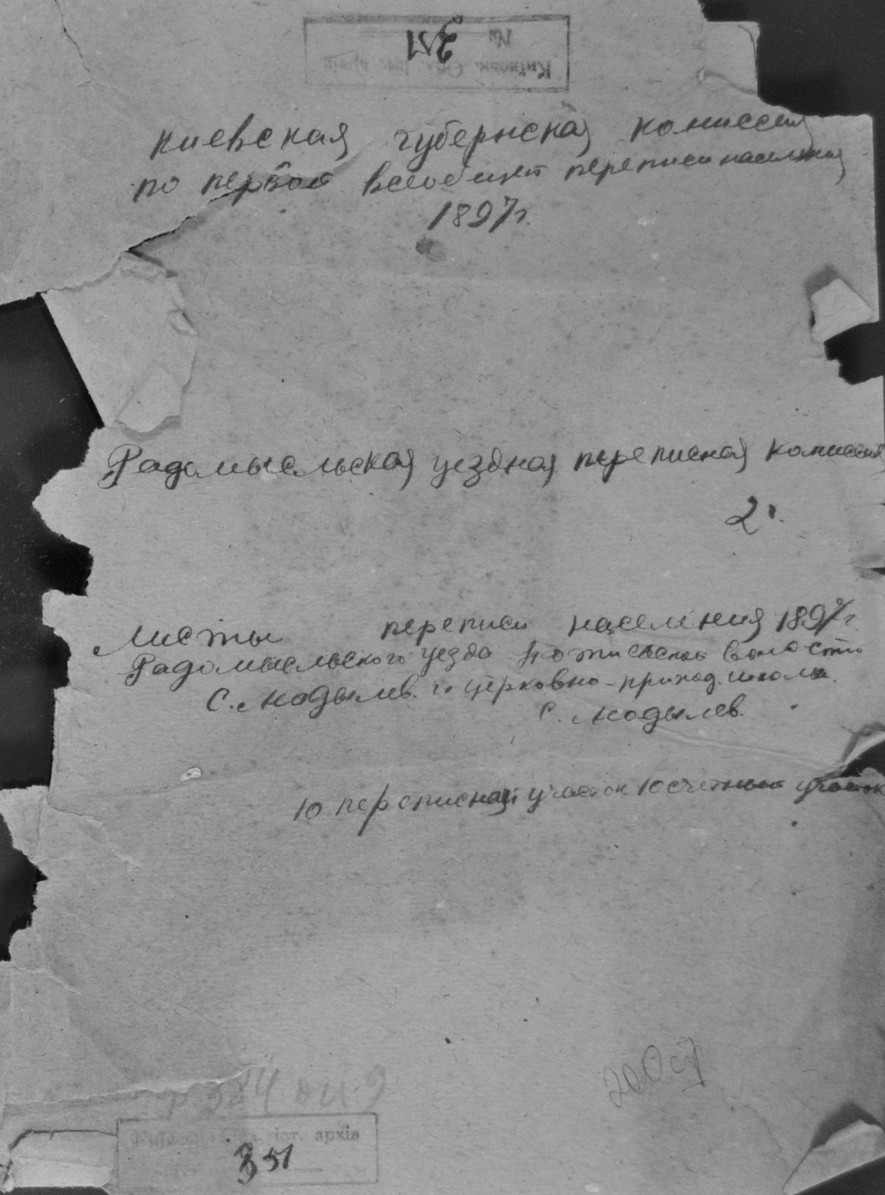 351
№
Київськ. Обл. іст. архів
киевская губернская комиссия
по первой всеобщей переписи населения
1897г.
Радомысльская уездная переписная комиссия
2.
Листы переписи населения 1897г.
Радомысльского уезда волости
С. Модылев. и церковно-приход. школы.
С. Модылев.
10 переписной участок 10 счетный участок
200
Ф 384 оп. 9
іст. архів
351